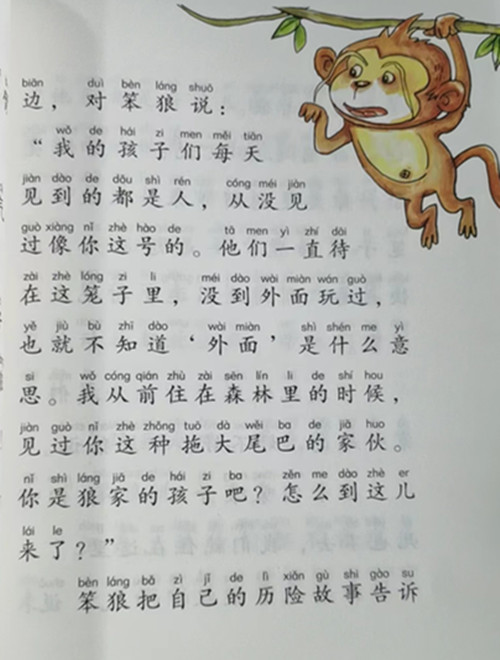 biān duì bèn láng shuō
边，对笨狼说：
wǒ de hái zi men měi tiān
“我的孩子们每天
jiàn dào de dōu shì rén cóng méi jiàn
见到的都是人，从没见
guò xiàng nǐ zhè hào de tā men yì zhí dāi
过像你这号的。他们一直待
zài zhè lóng zi li méi dào wài miàn wán guò
在这笼子里，没到外面玩过，
yě jiù bù zhī dào wài miàn shì shén me yì
也就不知道‘外面’是什么意
si wǒ cóng qián zhù zài sēn lín li de shí hou
思。我从前住在森林里的时候，
jiàn guò nǐ zhè zhǒng tuō dà wěi ba de jiā huo
见过你这种拖大尾巴的家伙。
nǐ shì láng jiā de hái zi ba zěn me dào zhè er
你是狼家的孩子吧？怎么到这儿
lái le
来了？”
bèn láng bǎ zì jǐ de lì xiǎn gù shi gào su
笨狼把自己的历险故事告诉